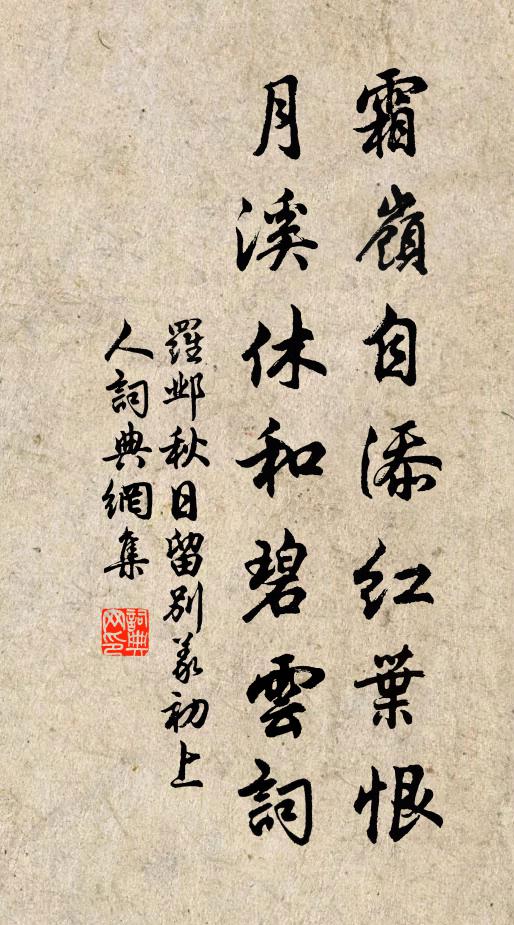 霜嶺自添紅葉恨
月溪休和碧雲詞
羅鄴秋日留別義初上
人詞典網集
詞典
网印